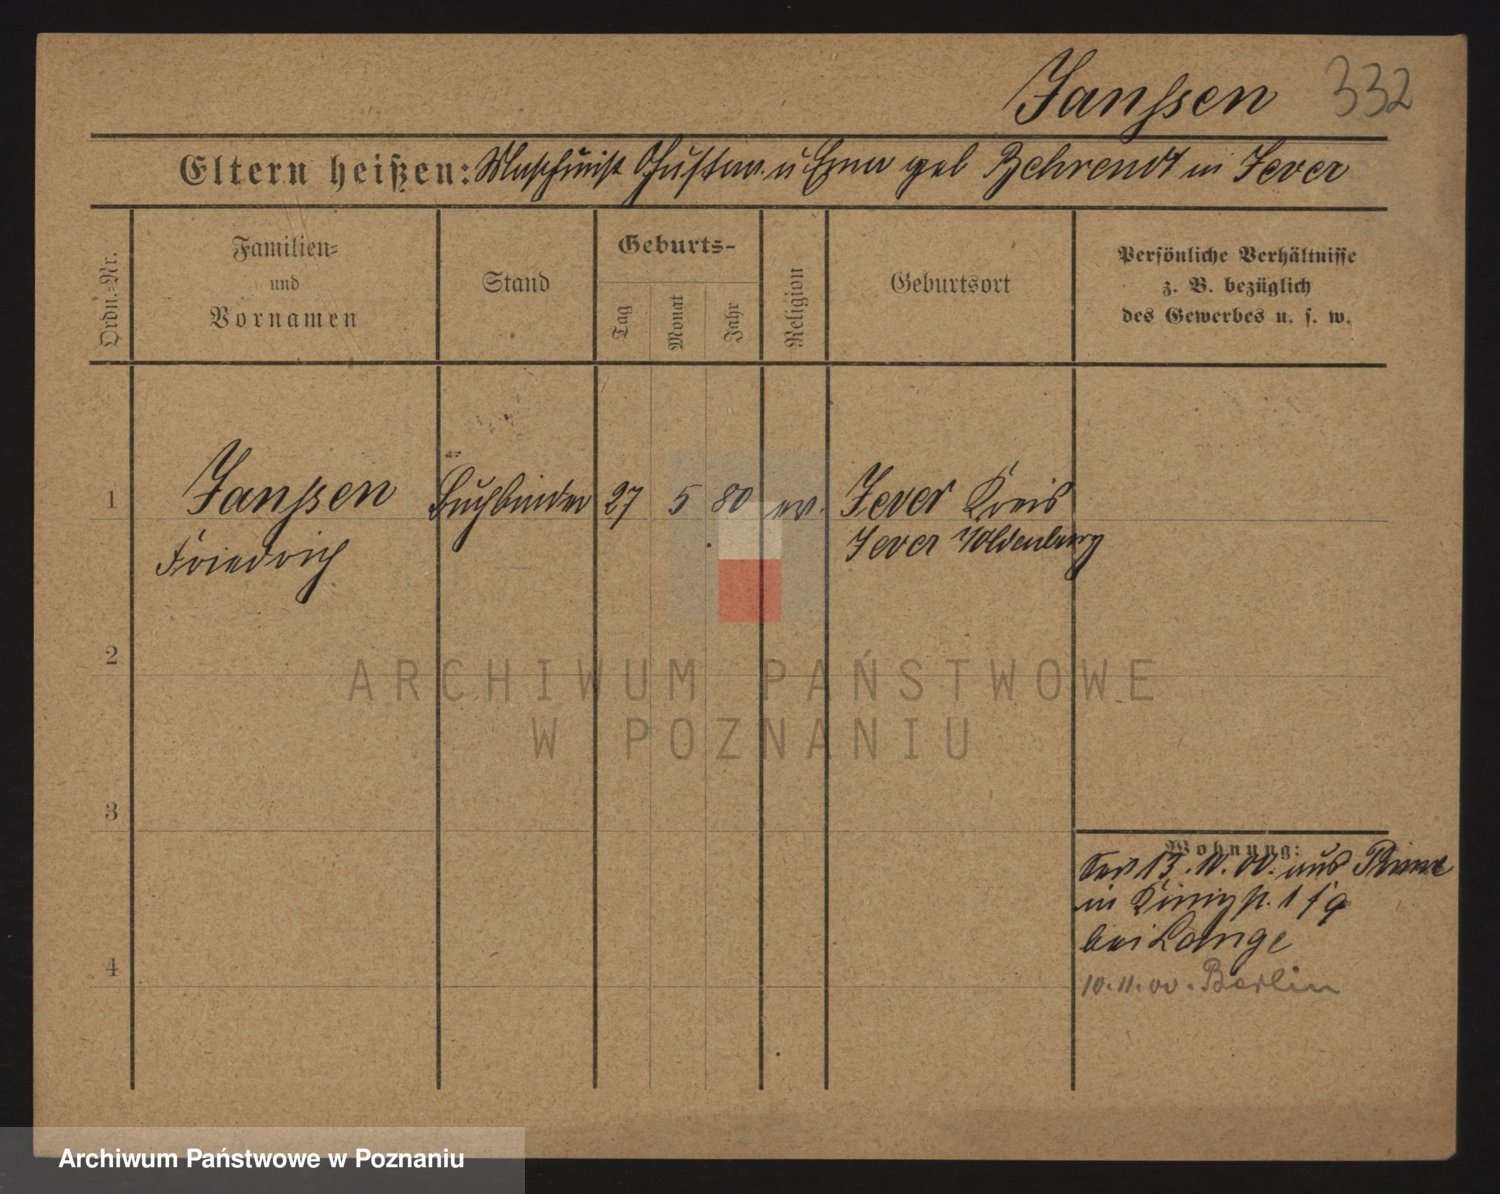 Janssen 332
Eltern heißen: Maschinist Gustav u Erna geb Behrendt in Jever
Ordn.-Nr.
Familien-
und
Vornamen
Stand
Geburts-
Tag
Monat
Jahr
Religion
Geburtsort
Persönliche Verhältnisse
z. B. bezüglich
des Gewerbes u. s. w.
1 Janssen Buchbinder 27 5 80 ev. Jever Kreis
Friedrich Jever Oldenburg
2
ARCHIWUM PAŃSTWOWE
W POZNANIU
3
Wohnung:
00. aus
in
bei Lange
4
10.11.00. Berlin
Archiwum Państwowe w Poznaniu